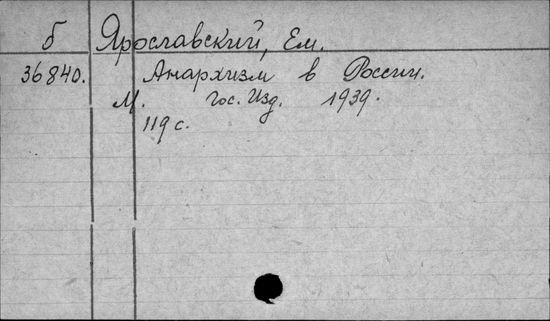 б Ярославский, Ем.
36840. Анархизм в России.
М. Гос. Изд. 1939.
119 с.